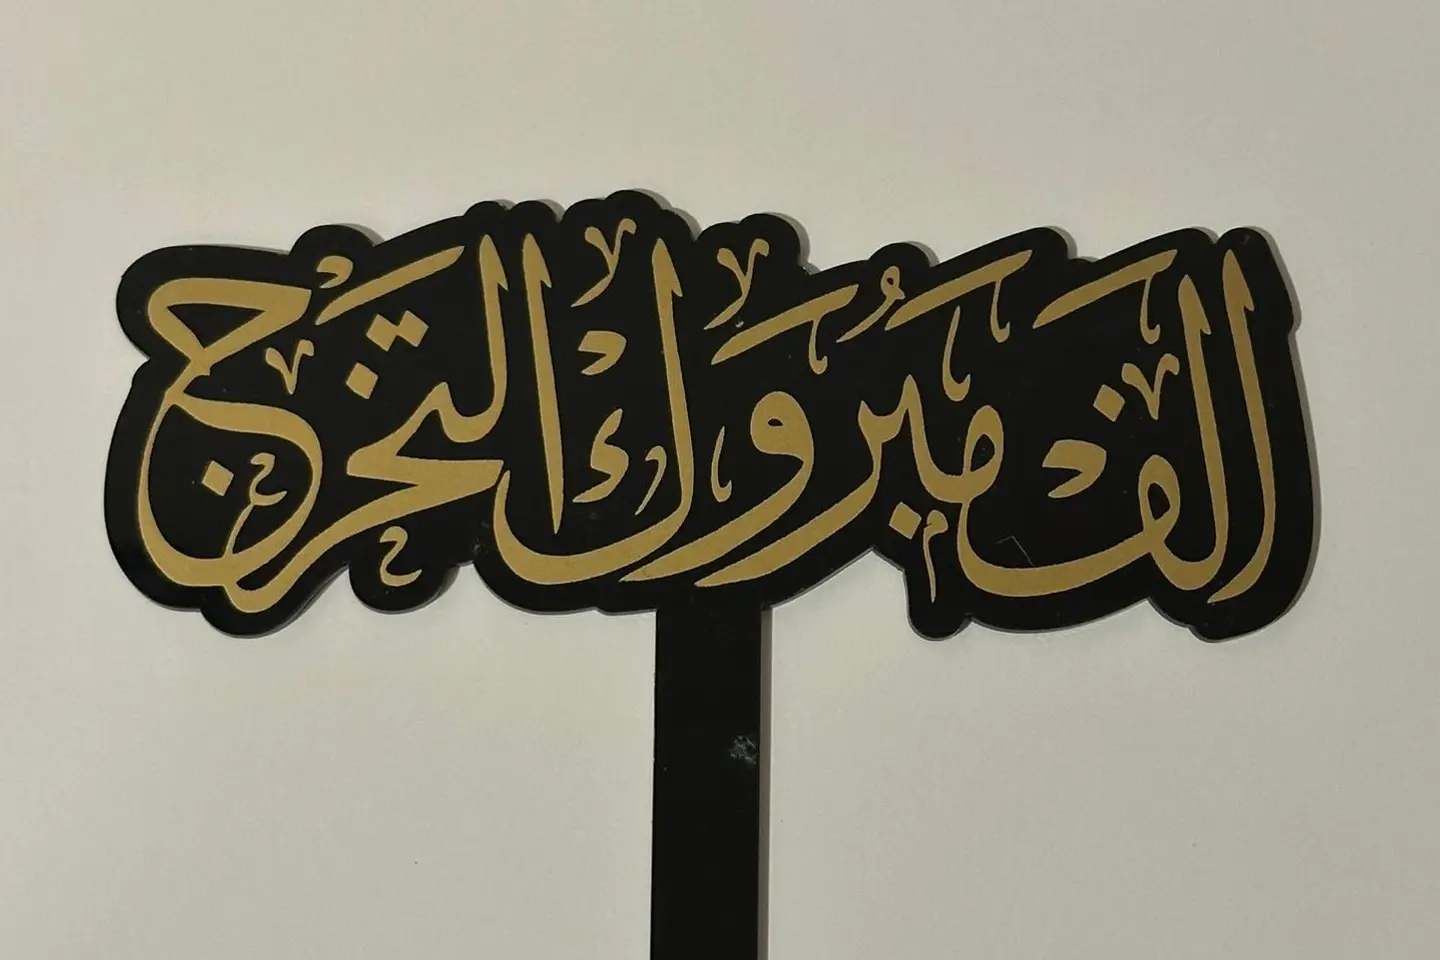 الف مبروك التخرج